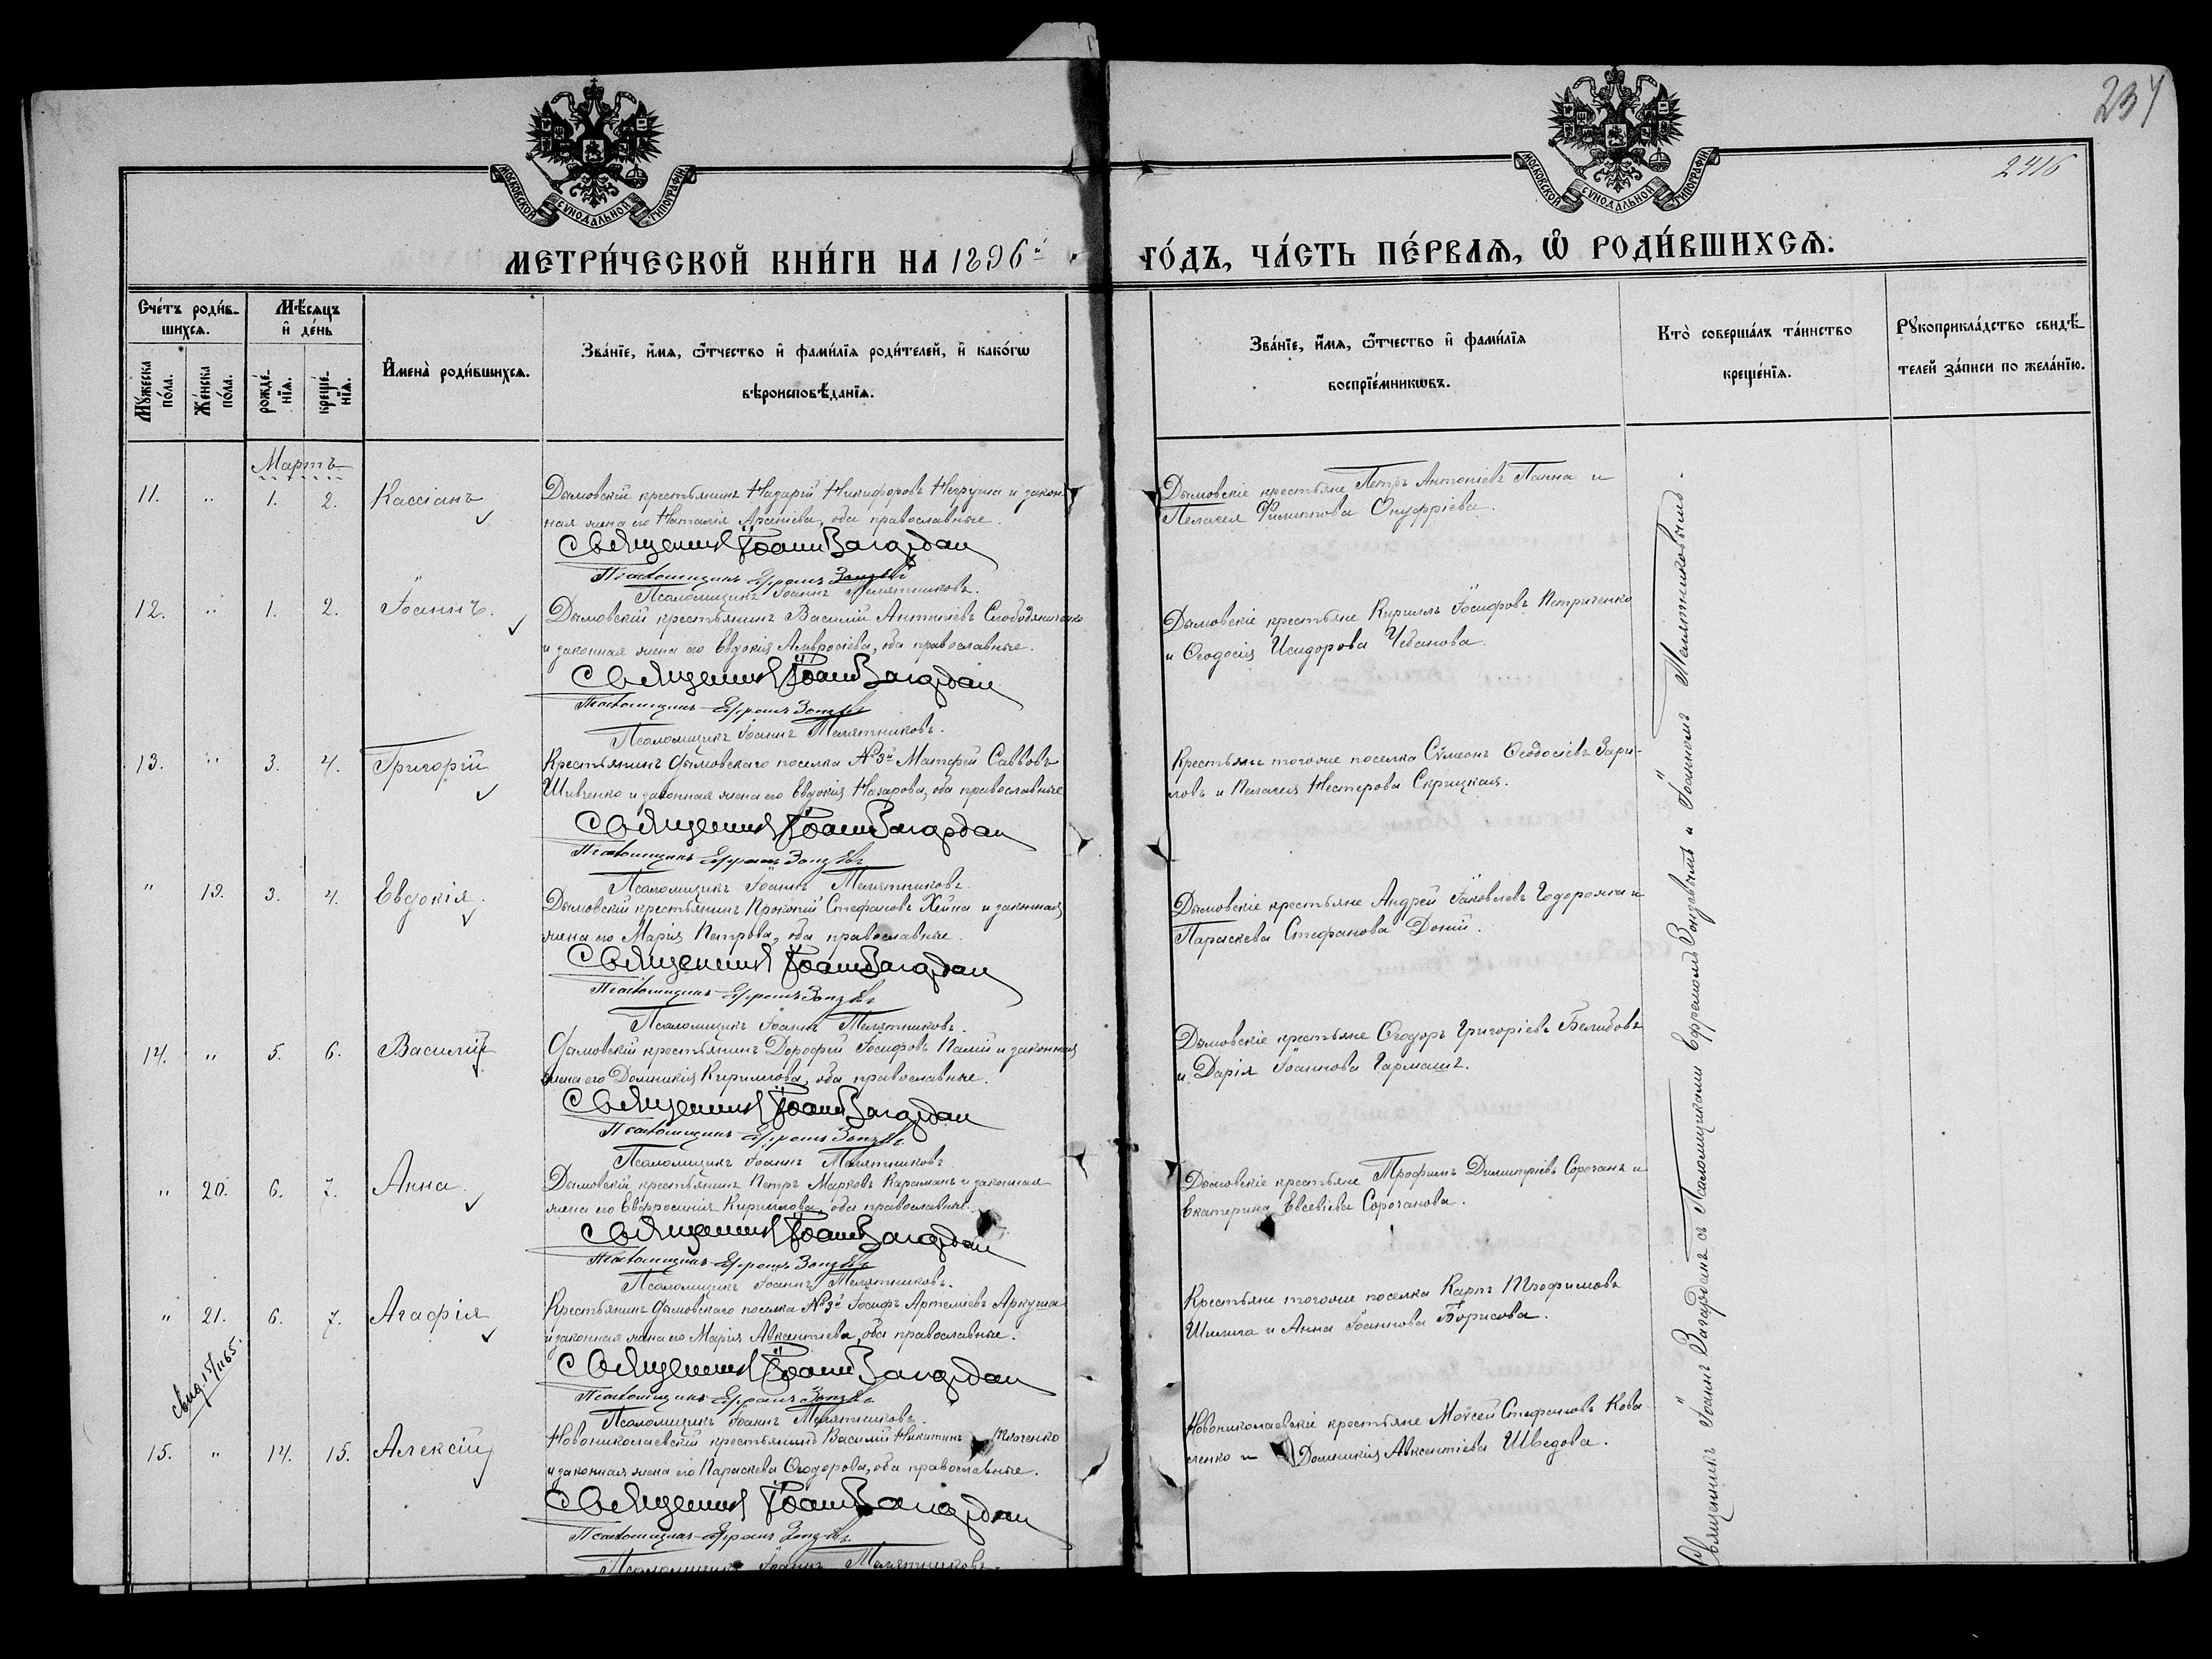 234
2416
МОСКОВСКОЙ СѴНОДАЛЬНОЙ ТИПОГРАФІИ
МОСКОВСКОЙ СѴНОДАЛЬНОЙ ТИПОГРАФІИ
МЕТРИ́ЧЕСКОЙ КНИ́ГИ НА 1896й ГО́ДЪ, ЧА́СТЬ ПЕ́РВАѦ, Ѡ҆ РОДИ́ВШИХСѦ.
Сче́тъ роди́в-
шихсѧ.
Мѣ́сѧцъ
и҆ де́нь
Мꙋ́жеска по́ла.
Же́нска по́ла.
рожде́-нїѧ.
креще́-нїѧ.
И҆мена̀ роди́вшихсѧ.
Зва́нїе, и҆́мѧ, ѻ҆́тчество и҆ фами́лїѧ роди́телей, и҆ како́гѡ
вѣроисповѣ́данїѧ.
Зва́нїе, и҆́мѧ, ѻ҆́тчество и҆ фами́лїѧ
воспрїе́мникѡвъ.
Кто̀ соверша́лъ та́инство
креще́нїѧ.
Рꙋкоприкла́дство свидѣ́-
телей за́писи по жела́нїю.
Мартъ
11. " 1. 2. Кассіанъ
Дымовскій крестьянинъ Назарій Никифоровъ Негруша и закон-
ная жена его Наталія Арсеніева, оба православные.
Священникъ Іоаннъ Вагардан
Псаломщикъ Ефремъ Зонзевъ
Псаломщикъ Іоаннъ Телятниковъ.
Дымовскіе крестьяне Петръ Антоніевъ Панна и
Пелагея Филиппова Онуфріева.
12. " 1. 2. Іоаннъ.
Дымовскій крестьянинъ Василій Антипіевъ Слободяниченко
и законная жена его Евдокія Амвросіева, оба православные.
Священникъ Іоаннъ Вагардан
Псаломщикъ Ефремъ Зонзевъ
Псаломщикъ Іоаннъ Телятниковъ.
Дымовскіе крестьяне Кириллъ Іосифовъ Петриченко
и Ѳеодосія Исидорова Чебанова.
13. " 3. 4. Григорій
Крестьянинъ Дымовскаго поселка №3й Матфей Савовъ
Шивченко и законная жена его Евдокія Назарова, оба православные
Священникъ Іоаннъ Вагардан
Псаломщикъ Ефремъ Зонзевъ
Псаломщикъ Іоаннъ Телятниковъ.
Крестьяне тогоже поселка Сѵмеонъ Ѳеодосіевъ Зари-
ловъ и Пелагея Нестерова Скрицкая.
" 19. 3. 4. Евдокія.
Дымовскій крестьянинъ Прокопій Стефановъ Хейна и законная
жена его Марія Петрова, оба православные.
Священникъ Іоаннъ Вагардан
Псаломщикъ Ефремъ Зонзевъ
Псаломщикъ Іоаннъ Телятниковъ.
Дымовскіе крестьяне Андрей Іаковлевъ Годорожа и
Параскева Стефанова Доній.
14. " 5. 6. Василій
Дымовскій крестьянинъ Дорофей Іосифовъ Палій и законная
жена его Домникія Кириллова, оба православные.
Священникъ Іоаннъ Вагардан
Псаломщикъ Ефремъ Зонзевъ
Псаломщикъ Іоаннъ Телятниковъ
Дымовскіе крестьяне Ѳеодоръ Григоріевъ Белибовъ
и Дарія Іоаннова Гармашъ.
" 20. 6. 7. Анна
Дымовскій крестьянинъ Петръ Марковъ Караманъ и законная
жена его Евфросинія Кириллова, оба православные.
Священникъ Іоаннъ Вагардан
Псаломщикъ Ефремъ Зонзевъ
Псаломщикъ Іоаннъ Телятниковъ.
Дымовскіе крестьяне Трофимъ Димитріевъ Сорочанъ и
Екатерина Евсевіева Сорочанова.
" 21. 6. 7. Агафія
Крестьянинъ Дымовскаго поселка №3й Іосифъ Артеміевъ Аркуша
и законная жена его Марія Авксентіева, оба православные.
Священникъ Іоаннъ Вагардан
Псаломщикъ Ефремъ Зонзевъ
Псаломщикъ Іоаннъ Телятниковъ.
Крестьяне тогоже поселка Карпъ Трофимовъ
Шилига и Анна Іоаннова Борисова.
15. " 14. 15. Алексій
Новониколаевскій крестьянинъ Василій Никитинъ Ткаченко
и законная жена его Параскева Ѳеодорова, оба православные.
Священникъ Іоаннъ Вагардан
Псаломщикъ Ефремъ Зонзевъ
Псаломщикъ Іоаннъ Телятниковъ.
Новониколаевскіе крестьяне Моѵсей Стефановъ Кова-
ленко и Домникія Авксентіева Шведова.
Священникъ Іоаннъ Вагарданъ съ Псаломщиками Ефремомъ Зонзевымъ и Іоанномъ Телятниковымъ.